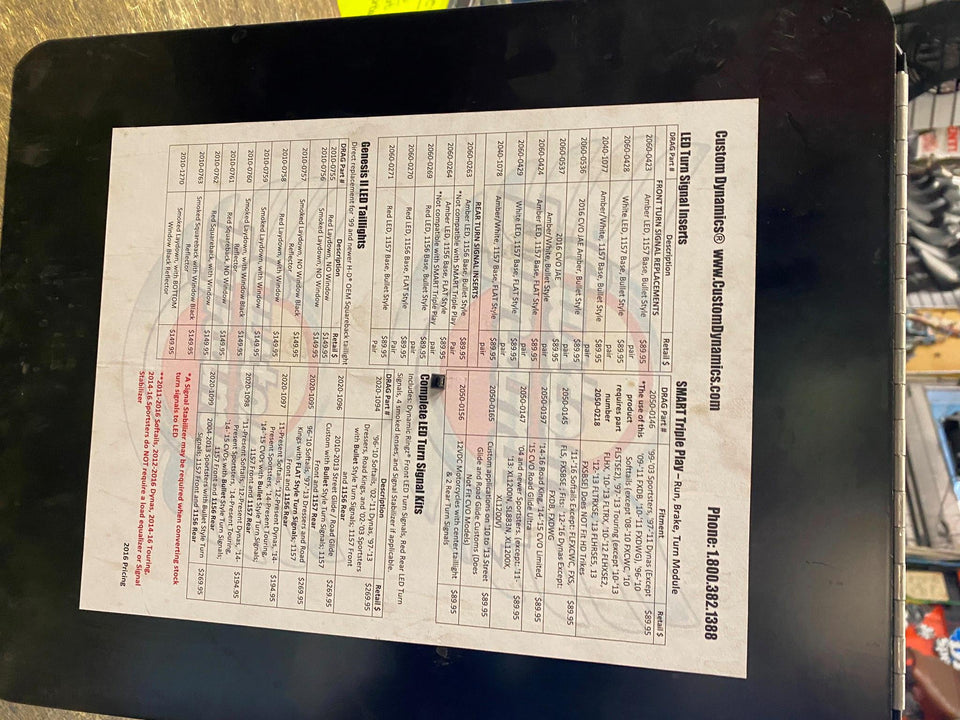 Custom Dynamics® www.CustomDynamics.com Phone: 1.800.382.1388
LED Turn Signal Inserts
DRAG Part # Description Retail $
FRONT TURN SIGNAL REPLACEMENTS
2060-0423 Amber LED, 1157 Base, Bullet Style $89.95 pair
2060-0428 White LED, 1157 Base, Bullet Style $89.95 pair
2040-1077 Amber/White, 1157 Base, Bullet Style $89.95 pair
2060-0536 2016 CVO JAE Amber, Bullet Style $89.95 pair
2060-0537 2016 CVO JAE
Amber/White, Bullet Style $89.95 pair
2060-0424 Amber LED, 1157 Base, FLAT Style $89.95 pair
2060-0429 White LED, 1157 Base, FLAT Style $89.95 pair
2040-1078 Amber/White, 1157 Base, FLAT Style $89.95 pair
REAR TURN SIGNAL INSERTS
2060-0263 Amber LED, 1156 Base, Bullet Style $89.95 Pair
*Not compatible with SMART Triple Play
2060-0264 Amber LED, 1156 Base, FLAT Style $89.95 pair
*Not compatible with SMART Triple Play
2060-0269 Red LED, 1156 Base, Bullet Style $89.95 pair
2060-0270 Red LED, 1156 Base, FLAT Style $89.95 Pair
2060-0271 Red LED, 1157 Base, Bullet Style $89.95 Pair
Genesis II LED Taillights
Direct replacement for '99 and newer H-D® OEM Squareback taillight
DRAG Part # Description Retail $
2010-0755 Red Laydown, NO Window $149.95
2010-0756 Smoked Laydown, NO Window $149.95
2010-0757 Smoked Laydown, NO Window Black Reflector $149.95
2010-0758 Red Laydown, with Window $149.95
2010-0759 Smoked Laydown, with Window $149.95
2010-0760 Smoked Laydown, with Window Black Reflector $149.95
2010-0761 Red Squareback, NO Window $149.95
2010-0762 Red Squareback, with Window $149.95
2010-0763 Smoked Squareback with Window Black Reflector $149.95
2010-1270 Smoked Laydown, with BOTTOM Window Black Reflector $149.95
SMART Triple Play – Run, Brake, Turn Module
DRAG Part # Fitment Retail $
2050-0146 '99-'03 Sportsters, '97-'11 Dynas (Except $89.95
*The use of this '09-'11 FXDB, '10-'11 FXDWG), '96-'10
product Softails (except '08-'10 FXCWC, '10
requires part FLSTSE), '97-'13 Touring (except '10-'13
number FLHX, '10-'23 FLTRX, '10-'12 FLHXSE2,
2050-0218 '12-'13 FLTRXSE, '13 FLHRSE5, 13
FXSBSE) Does NOT Fit HD Trikes
2050-0145 '11-'16 Softails Except: FLFXCWC, FXS, $89.95
FLS, FXSSE. Fits '12-'16 Dynas Except
FXDB, FXDWG
2050-0197 '14-'16 Road King, '14-'15 CVO Limited, $89.95
'15 CVO Road Glide Ultra
2050-0147 '04 and newer Sportsters, (except: '11- $89.95
'13: XL1200N, SL883N, XL1200X,
XL1200V)
2050-0165 Custom applications on '10 to '13 Street $89.95
Glide and Road Glide Customs (Does
Not Fit CVO Models)
2050-0155 12VDC Motorcycles with center taillight $89.95
& 2 Rear Turn Signals
Complete LED Turn Signal Kits
Includes: Dynamic Ringz® Front LED Turn Signals, Red Rear LED Turn
Signals, 4 smoked lenses, and Signal Stabilizer if applicable.
DRAG Part # Description Retail $
2020-1094 '96-'10 Softails, '02-'11 Dynas, '97-'13 $269.95
Dressers, Road Kings, and '02-'03 Sportsters
with Bullet Style Turn Signals; 1157 Front
and 1156 Rear
2020-1096 2010-2013 Street Glide / Road Glide $269.95
Custom with Bullet Style Turn Signals; 1157
Front and 1157 Rear
2020-1095 96-'10 Softails, '97-'13 Dressers and Road $269.95
Kings with FLAT Style Turn Signals; 1157
Front and 1156 Rear
2020-1097 11-Present Softails, '12-Present Dynas, '14- $194.95
Present Sportsters, '14-Present Touring,
'14-'15 CVOs with Bullet Style Turn Signals;
1157 Front and 1156 Rear
2020-1098 '11-Present Softails, '12-Present Dynas, '14- $194.95
Present Sportsters, '14-Present Touring,
'14-'15 CVOs with Bullet Style Turn Signals;
1157 Front and 1157 Rear
2020-1099 2004-2013 Sportsters with Bullet Style Turn $269.95
Signals; 1157 Front and 1156 Rear
*A Signal Stabilizer may be required when converting stock
turn signals to LED
**2011-2016 Softails, 2012-2016 Dynas, 2014-16 Touring,
2014-16 Sportsters do NOT require a load equalizer or Signal
Stabilizer
2016 Pricing